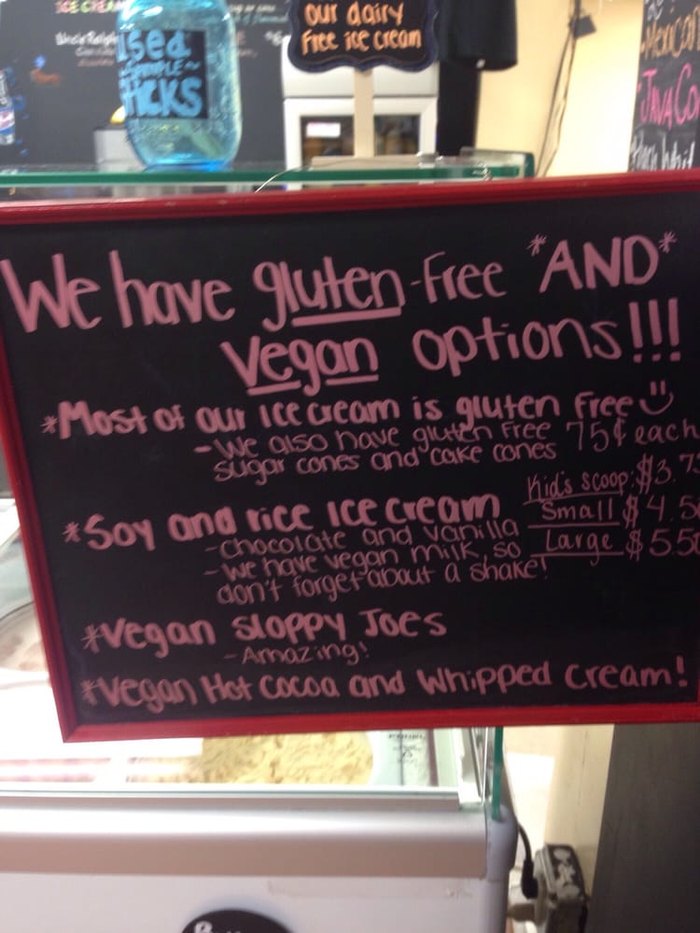 ICE CREAM
used
SAMPLE
STICKS
our dairy
free ice cream
Mexican
JAVA Co
We have gluten-free *AND*
vegan options!!!
*Most of our ice cream is gluten free
-We also have gluten free 75¢ each
sugar cones and cake cones
*Soy and rice ice cream
-chocolate and vanilla
-We have vegan milk, so
don't forget about a shake!
Kid's scoop: $3.7
Small $4.5
Large $5.50
*Vegan sloppy Joes
-Amazing!
*Vegan Hot Cocoa and Whipped Cream!